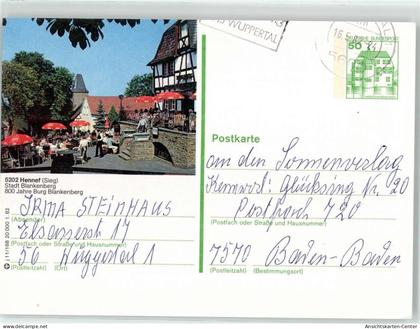 WUPPERTAL
16.5.
DEUTSCHE BUNDESPOST
50
5202 Hennef (Sieg)
Stadt Blankenberg
800 Jahre Burg Blankenberg
IRMA STEINHAUS
(Absender)
Elsasserstr 17
(Postfach oder Straße und Hausnummer)
56 Wuppertal 1
(Postleitzahl) (Ort)
Postkarte
an den Sonnenverlag
Kennwort: Glücksing Nr. 20
Postfach 720
(Postfach oder Straße und Hausnummer)
7570 Baden-Baden
(Postleitzahl) (Bestimmungsort)
www.ansichtskarten-center.de
Ansichtskarten-Center.de